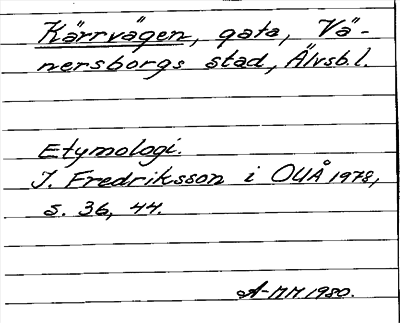 Kärrvägen, gata, Vä-
nersborgs stad, Älvsb.l.
Etymologi.
I. Fredriksson i OUÅ 1978,
s. 36, 44.
A-MM 1980.